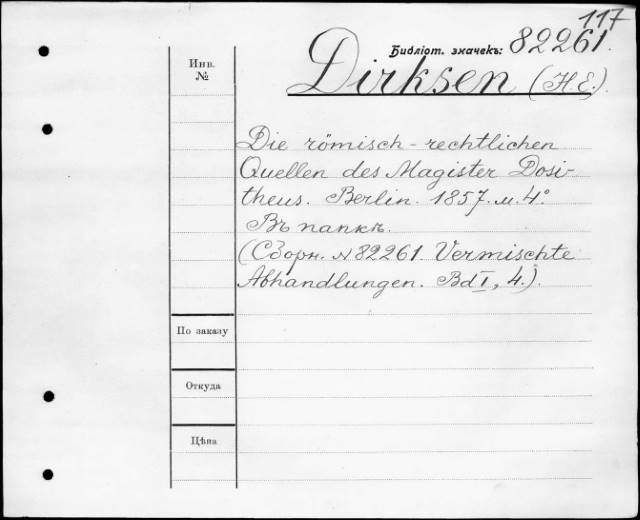 117
Библіот. значекъ: 82261.
Инв.
№
Dirksen (H.E.).
Die römisch-rechtlichen
Quellen des Magister Dosi-
theus. Berlin. 1857. м. 4°
Въ папкѣ.
(Сборн. №82261. Vermischte
Abhandlungen. Bd I, 4.).
По заказу
Откуда
Цѣна